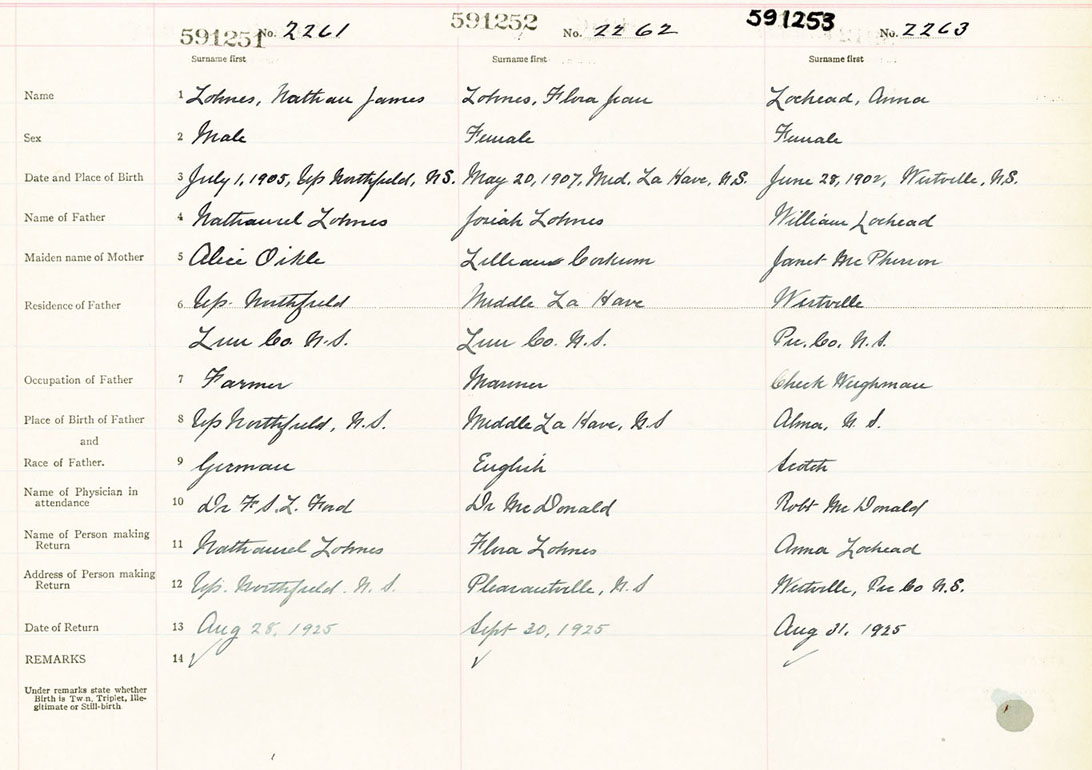 591251 No. 2261 591252 No. 2262 591253 No. 2263
Surname first Surname first Surname first
Name 1 Lohnes, Nathan James Lohnes, Flora Jean Lochead, Anna
Sex 2 Male Female Female
Date and Place of Birth 3 July 1, 1905, Up Northfield, N.S. May 20, 1907, Mid. La Have, N.S. June 28, 1902, Westville, N.S.
Name of Father 4 Nathaniel Lohnes Josiah Lohnes William Lochead
Maiden name of Mother 5 Alice Oikle Corkum Janet McPherson
Residence of Father 6 Up. Northfield Middle La Have Westville
Lun Co. N.S. Lun Co. N.S. Pic. Co. N.S.
Occupation of Father 7 Farmer Mariner Check Weighman
Place of Birth of Father 8 Up Northfield, N.S. Middle La Have, N.S Alma, N.S.
and
Race of Father. 9 German English Scotch
Name of Physician in
attendance 10 Dr F.S.L. Ford Dr McDonald Robt McDonald
Name of Person making
Return 11 Nathaniel Lohnes Flora Lohnes Anna Lochead
Address of Person making
Return 12 Up. Northfield. N.S. Pleasantville, N.S Westville, Pic Co N.S.
Date of Return 13 Aug 28, 1925 Sept 30, 1925 Aug 31, 1925
REMARKS 14
Under remarks state whether
Birth is Twin, Triplet, Ille-
gitimate or Still-birth